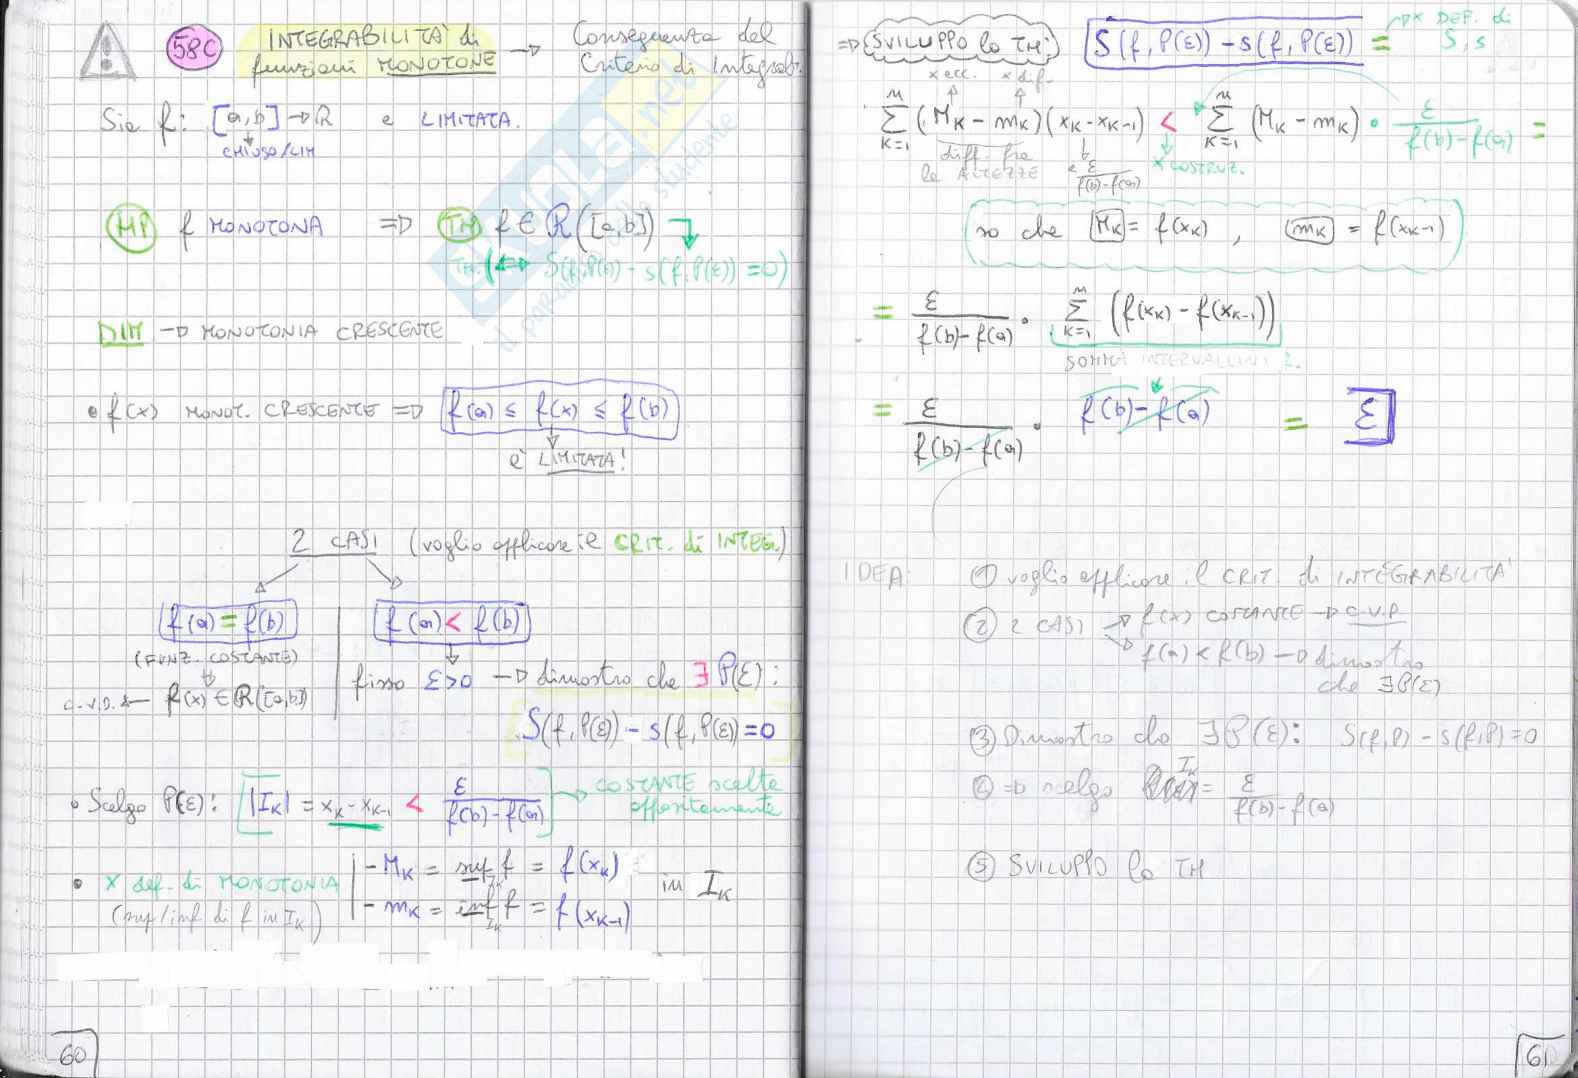 58C INTEGRABILITA' di funzioni MONOTONE → Conseguenza del Criterio di Integrab.
Sia f: [a,b] → R e LIMITATA.
CHIUSO/LIM
HP f MONOTONA ⇒ TH f ∈ R([a,b])
TH. (↔ S(f,P(ε)) - s(f,P(ε)) = 0)
DIM → MONOTONIA CRESCENTE
• f(x) MONOT. CRESCENTE ⇒ f(a) ≤ f(x) ≤ f(b)
è LIMITATA!
2 CASI (voglio applicare il CRIT. di INTEG.)
f(a) = f(b) f(a) < f(b)
(FUNZ. COSTANTE)
c.v.d. ← f(x) ∈ R([a,b])
fisso ε>0 → dimostro che ∃ P(ε):
S(f,P(ε)) - s(f,P(ε)) = 0
• Scelgo P(ε): |I_K| = x_K - x_K-1 < ε / (f(b)-f(a)) → COSTANTE scelta appositamente
• x def. di MONOTONIA
(sup/inf di f in I_K)
- M_K = sup f = f(x_K)
- m_K = inf_I_K f = f(x_K-1)
in I_K
60
⇒ SVILUPPO la TH: S(f,P(ε)) - s(f,P(ε)) = → x DEF. di S, s
x ecc. x dif.
Σ_K=1^n (M_K - m_K)(x_K - x_K-1) < Σ_K=1^n (M_K - m_K) • ε / (f(b)-f(a)) =
diff. fra le ALTEZZE
< ε / (f(b)-f(a))
x COSTRUZ.
so che M_K = f(x_K), m_K = f(x_K-1)
= ε / (f(b)-f(a)) • Σ_K=1^n (f(x_K) - f(x_K-1))
SOMMA INTERVALLINI
= ε / (f(b)-f(a)) • f(b)-f(a) = ε
IDEA: ① voglio applicare il CRIT. di INTEGRABILITA'
② 2 CASI → f(x) COSTANTE → C.V.D.
→ f(a) < f(b) → dimostro che ∃P(ε)
③ Dimostro che ∃P(ε): S(f,P) - s(f,P) = 0
④ ⇒ scelgo I_K = ε / (f(b)-f(a))
⑤ SVILUPPO la TH
61
skuola.net
il paradiso dello studente